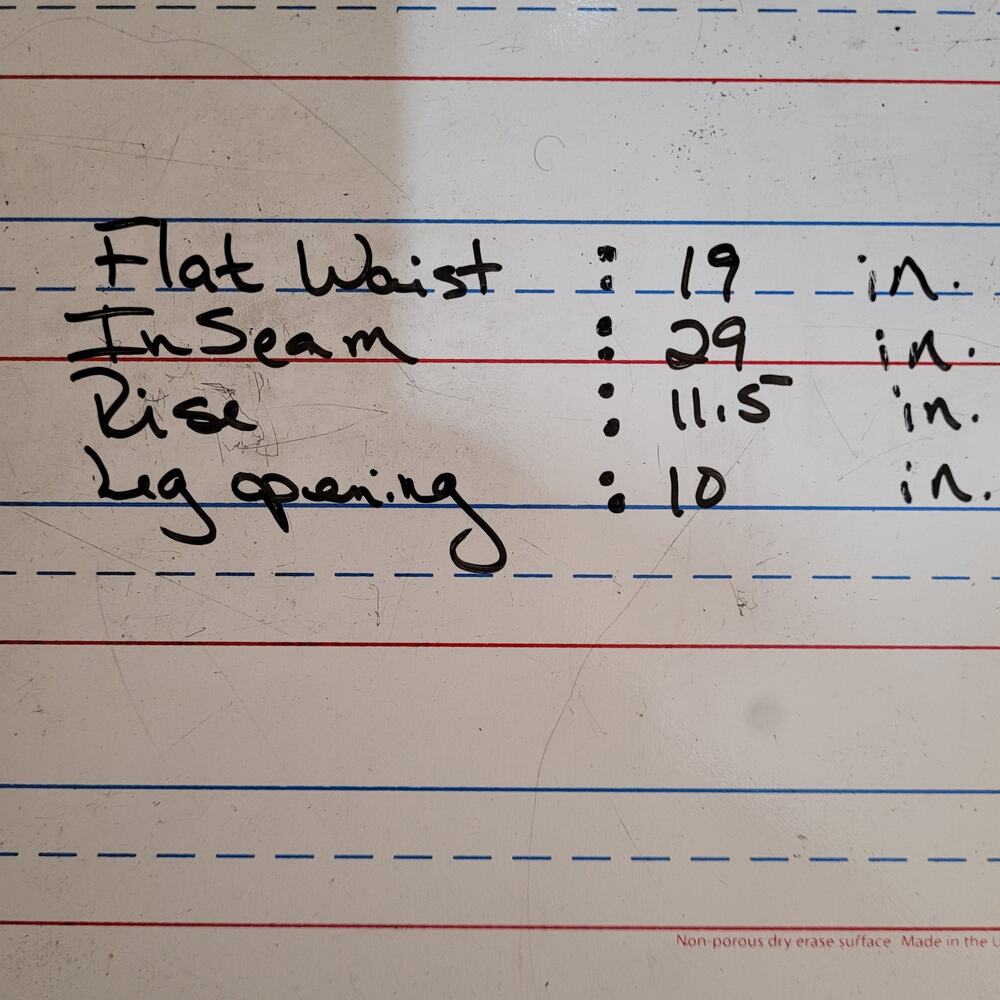 Flat Waist : 19 in.
InSeam : 29 in.
Rise : 11.5 in.
Leg opening : 10 in.
Non-porous dry erase surface Made in the U